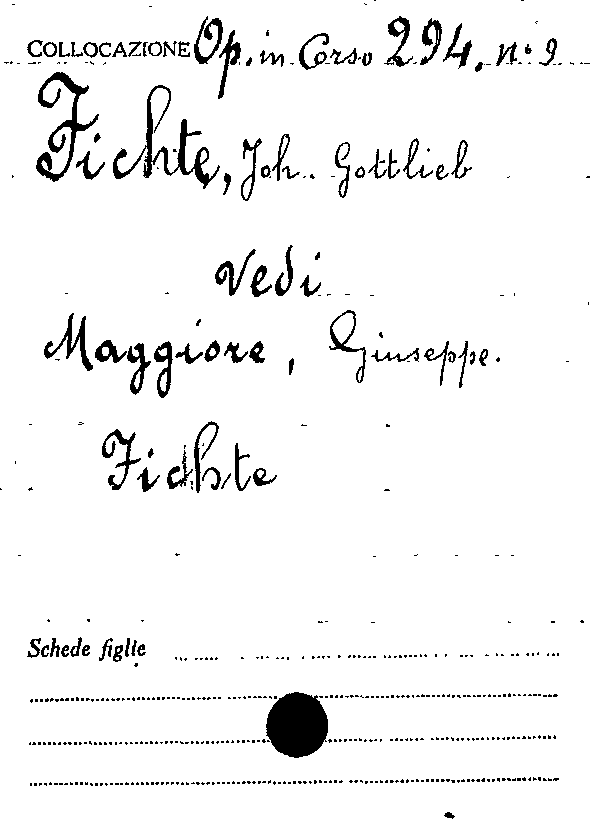 COLLOCAZIONE Op. in Corso 294. n° 9
Fichte, Joh. Gottlieb
Vedi
Maggiore, Giuseppe.
Fichte
Schede figlie